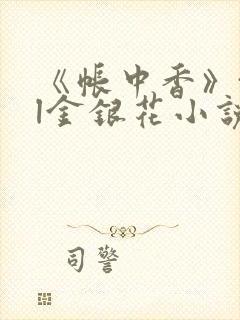 《帐中香》
|金银花小説
司警